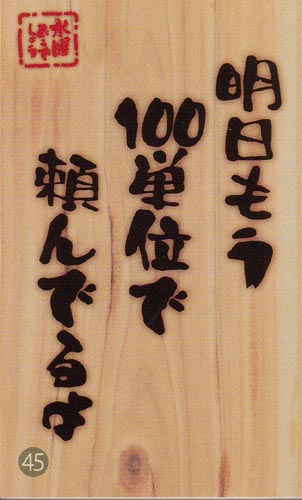 明日もう
100単位で
頼んでるよ
水曜
どうで
しょう
45